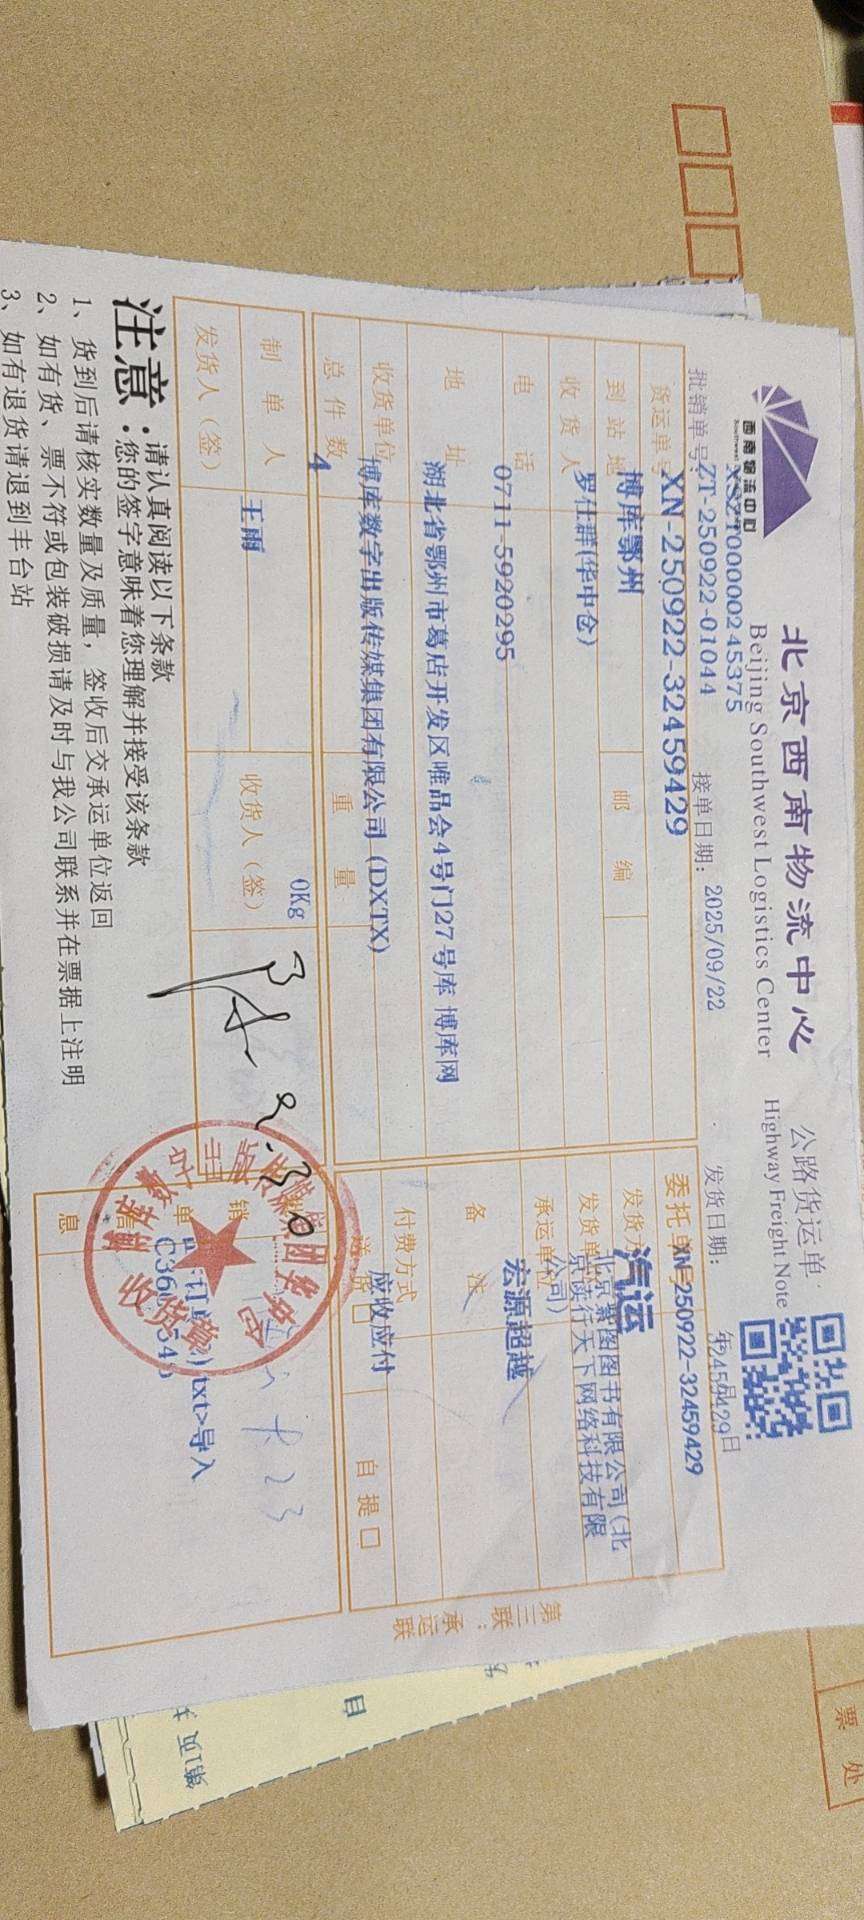 西南物流中心
北京西南物流中心
Beijing Southwest Logistics Center
公路货运单
Highway Freight Note
XSZT000000245375
批销单号: ZT-250922-01044
接单日期: 2025/09/22
发货日期: 年 月 日
32459429
货运单号 XN-250922-32459429
委托单号 XN-250922-32459429
到站地 博库鄂州
邮编
发货方式 汽运
收货人 罗仕群(华中仓)
发货单位 北京紫图图书有限公司(北
京读行天下网络科技有限
公司)
电话 0711-5920295
承运单位 宏源超越
地址 湖北省鄂州市葛店开发区唯品会4号门27号库 博库网
备注
收货单位 博库数字出版传媒集团有限公司 (DXTX)
付费方式 应收应付
总件数 4
重量 0Kg
送货 □
自提 □
制单人 王雨
收货人(签)
9.30
发货人(签)
销
单
信
息
txt>导入
收货章
注意:
请认真阅读以下条款
您的签字意味着您理解并接受该条款
1、货到后请核实数量及质量, 签收后交承运单位返回
2、如有货、票不符或包装破损请及时与我公司联系并在票据上注明
3、如有退货请退到丰台站
第三联: 承运联
票处